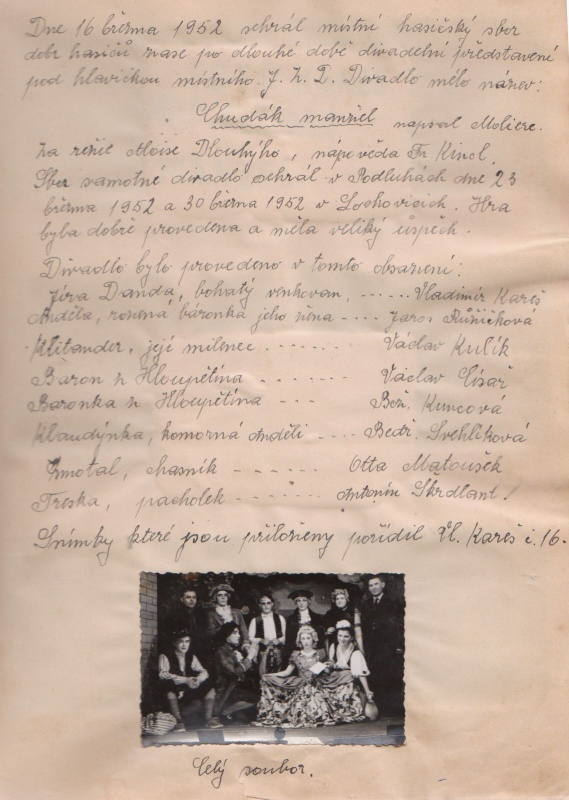 Dne 16 března 1952 sehrál místní hasičský sbor
dobr hasičů zase po dlouhé době divadelní představení
pod hlavičkou místního. J. Z. D. Divadlo mělo název:
Chudák manžel napsal Moliere.
Za režie Aloise Dlouhýho, nápověda Fr. Kincl.
Sbor samotné divadlo sehrál v Podluhách dne 23
března 1952 a 30 března 1952 v Lochovicích. Hra
byla dobře provedena a měla veliký úspěch.
Divadlo bylo provedeno v tomto obsazení:
Jíra Danda, bohatý venkovan, ..... Vladimír Kareš
Anděla, rozená báronka jeho žena .... Jaro. Růžičková
Klitander, její milenec ....... Václav Kulík
Baron z Hloupětína ....... Václav Císař
Baronka z Hloupětína --- Bož. Kuncová
Klaudýnka, komorná Anděli .... Bedř. Švehlíková
Zmotal, chasník ------ Otta Matoušek
Treska, pacholek ------- Antonín Škrdlant!
Snímky které jsou přiloženy pořídil Vl. Kareš č. 16.
Celý soubor.